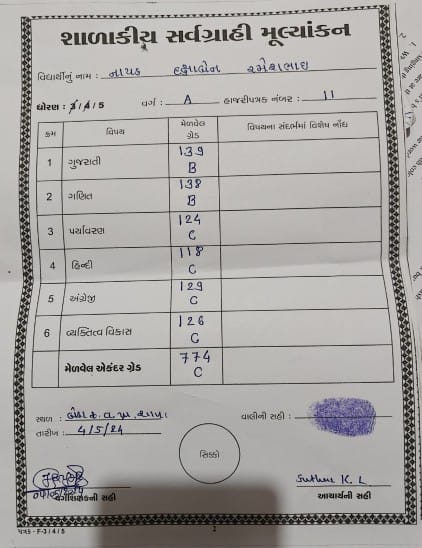 શાળાકીય સર્વગ્રાહી મૂલ્યાંકન
વિદ્યાર્થીનું નામ : નાયક દક્ષાબેન રમેશભાઇ
ધોરણ : 3/4/5 વર્ગ : A હાજરીપત્રક નંબર : 11
ક્રમ વિષય મેળવેલ ગ્રેડ વિષયના સંદર્ભમાં વિશેષ નોંધ
1 ગુજરાતી 139 B
2 ગણિત 138 B
3 પર્યાવરણ 124 C
4 હિન્દી 118 C
5 અંગ્રેજી 129 C
6 વ્યક્તિત્વ વિકાસ 126 C
મેળવેલ એકંદર ગ્રેડ 774 C
સ્થળ : વાલીની સહી :
તારીખ : 4/5/24
સિક્કો
Suthar K. L
વર્ગશિક્ષકની સહી આચાર્યની સહી
પત્રક - F-3/4/5 2